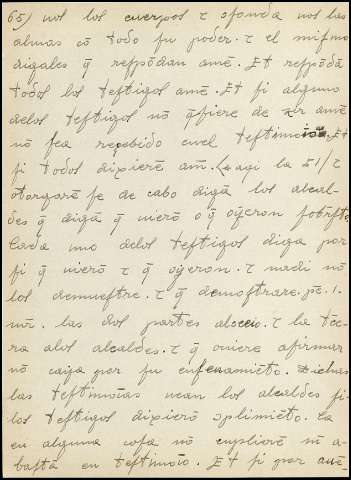 65) nos los cuerpos τ ofonda nos las
almas cō todo ſu poder. τ el miſmo
digales q̄ reſpōdan amē. Et reſpōdā
todos los teſtigos amē. Et ſi alguno
delos teſtigos nō q̄ſiere de zir amē
nō ſea reçebido en el teſtimōio. Et
ſi todos dixierē am̄. aqi la Σ1/ τ
otorgarē ſe de cabo digā los alcal-
des q̄ digā q̄ vierō o q̄ oyeron ſobreſto
Cada uno delos teſtigos diga por
ſi q̄ vierō τ q̄ oyeron. τ nadi nō
los demueſtre. τ q̄ demoſtrare. pc̄. 1.
mr̄. las dos partes al τ la τēe-
ra alos alcaldes. τ q̄ oviere afirmar
nō caya por ſu enſenamiēto. Dichas
las teſtimōias vean los alcaldes ſi
los teſtigos dixierō cplimiēto. Ca
en alguna coſa nō cupliorē nō a-
baſtā en teſtimōio. Et ſi por avē-